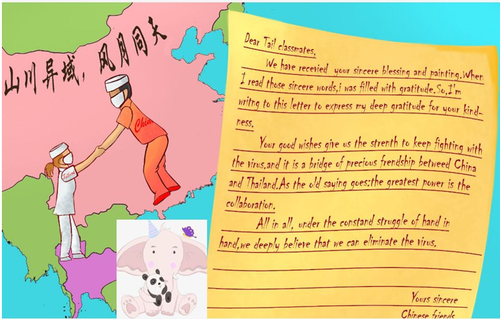 山川异域，风月同天
China
Dear Tail classmates.
We have recevied your sincere blessing and painting.When
I read those sincere words,i was filled with gratitude.So,I'm
writng to this letter to express my deep gratitude for your kind-
ness.
Your good wishes give us the strenth to keep fighting with
the virus,and it is a bridge of precious frendship betweed China
and Thailand.As the old saying goes;the greatest power is the
collaboration.
All in all, under the constand struggle of hand in
hand,we deeply believe that we can eliminate the virus.
Yours sincere
Chinese friends